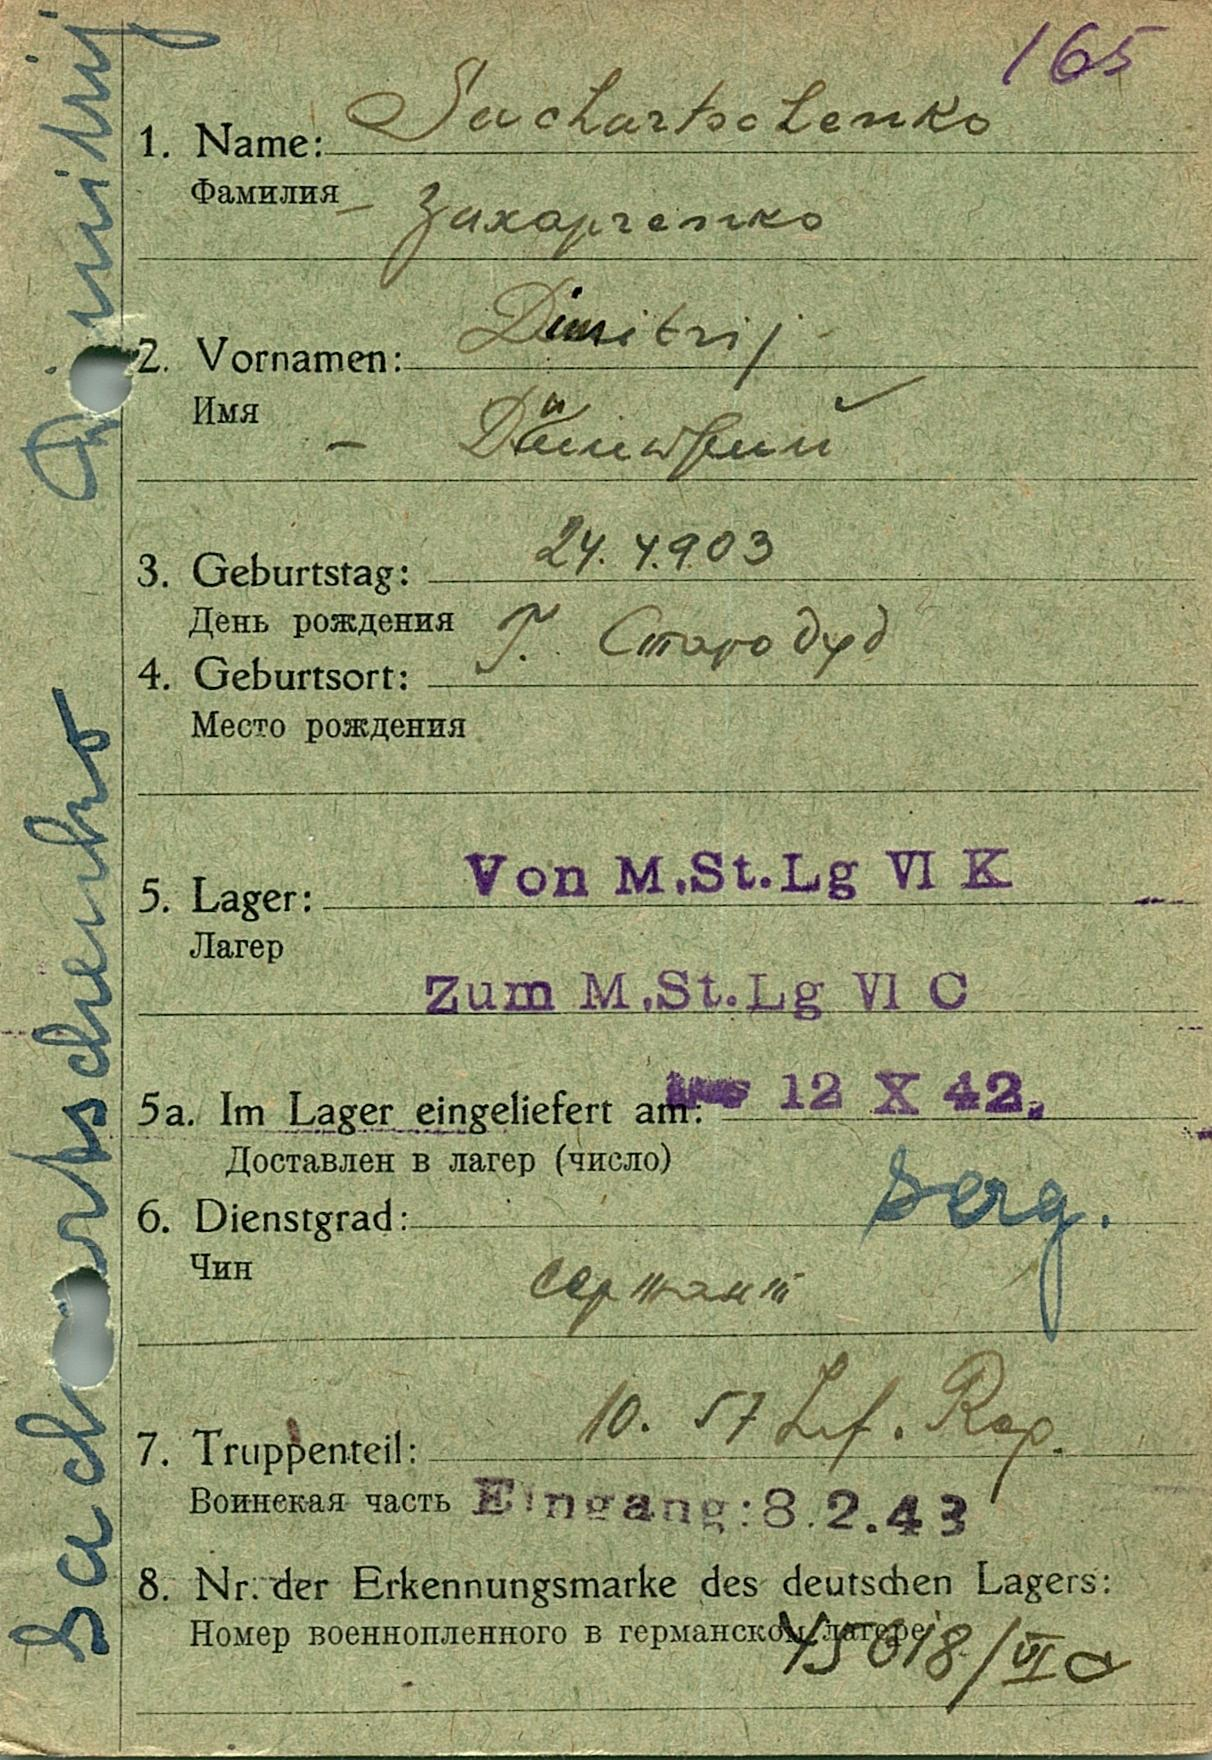 165
1. Name: Sachartschenko
Фамилия - Захарченко
2. Vornamen: Dimitrij
Имя
- Димитрий
3. Geburtstag: 24.4.903
День рождения
4. Geburtsort: Г. Стародуб
Место рождения
5. Lager: Von M.St.Lg VI K
Лагер
Zum M.St.Lg VI C
5a. Im Lager eingeliefert am: 12 X 42.
Доставлен в лагер (число)
6. Dienstgrad: Serg.
Чин
сержант
7. Truppenteil: 10. 57 Inf. Reg.
Воинская часть Eingang: 8.2.43
8. Nr. der Erkennungsmarke des deutschen Lagers:
Номер военнопленного в германском лагере
/VI a
Sachartschenko Dimitrij